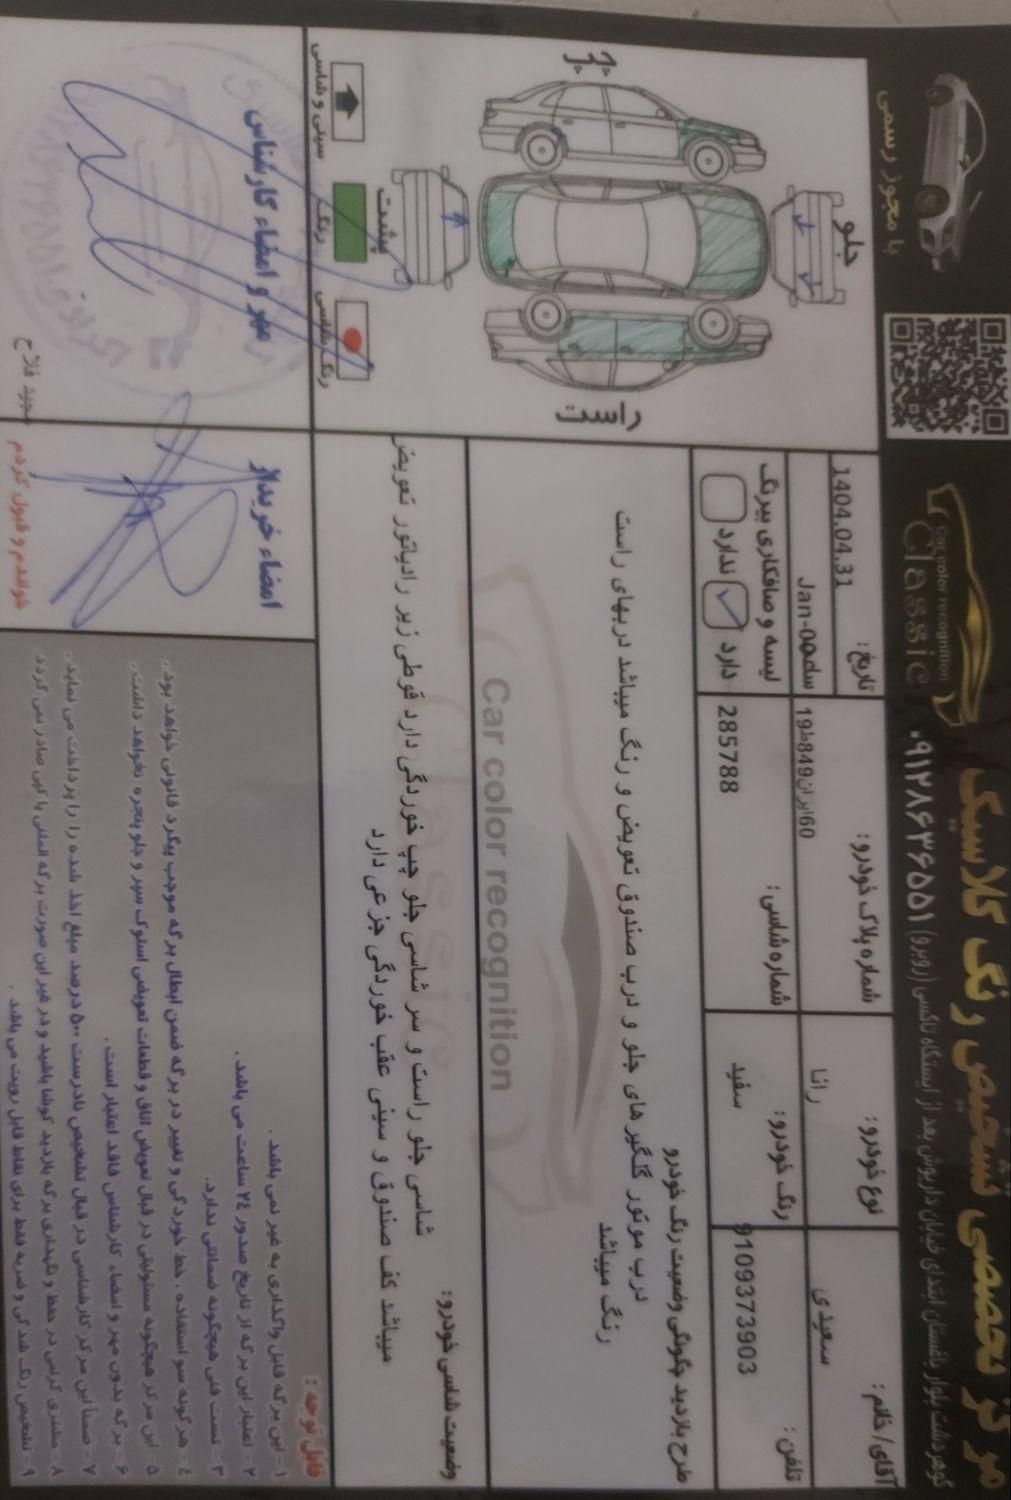 مرکز تخصصی تشخیص رنگ کلاسیک
گوهردشت بلوار باغستان ابتدای خیابان داریوش بعد از ایستگاه تاکسی (روبرو) ۰۹۱۲۸۶۳۶۵۵۱
Classic
Car color recognition
با مجوز رسمی
آقای/ خانم:
سعیدی
نوع خودرو:
رانا
شماره پلاک خودرو:
60ایران849ط19
تاریخ:
1404.04.31
ساعت:Jan-00
تلفن:
9109373903
رنگ خودرو:
سفید
شماره شاسی:
285788
لیسه و صافکاری بیرنگ
دارد
ندارد
جلو
پشت
راست
چپ
سینی و شاسی
رنگ
طرح بازدید چگونگی وضعیت رنگ خودرو
درب موتور گلگیر های جلو و درب صندوق تعویض و رنگ میباشد دربهای راست
رنگ میباشد
Car color recognition
وضعیت شاسی خودرو:
شاسی جلو راست و سر شاسی جلو چپ خوردگی دارد قوطی زیر رادیاتور تعویض
میباشد کف صندوق و سینی عقب خوردگی جزعی دارد
مهر و امضاء کارشناس
مجید فلاح
امضاء خریدار
خواندم و قبول کردم
قابل توجه:
۱- این برگه قابل واگذاری به غیر نمی باشد.
۲- اعتبار این برگه از تاریخ صدور ۲۴ ساعت می باشد.
۳- تست فنی هیچگونه ضمانتی ندارد.
۴- هرگونه سو استفاده، خط خوردگی و تغییر در برگه ضمن ابطال برگه موجب پیگرد قانونی خواهد بود.
۵- این مرکز هیچگونه مسئولیتی در قبال تعویض اتاق و قطعات تعویضی استوک سپر و جلو پنجره نخواهد داشت.
۶- برگه بدون مهر و امضاء کارشناس فاقد اعتبار است.
۷- ضمنا این مرکز کارشناسی در قبال تشخیص نادرست ۵۰۰ درصد مبلغ اخذ شده را پرداخت می نماید.
۸- مشتری گرامی در حفظ و نگهداری برگه بازدید کوشا باشید و در غیر این صورت برگه المثنی یا کپی صادر نمی گردد.
۹- تشخیص رنگ شدگی و ضربه فقط برای نقاط قابل رویت می باشد.